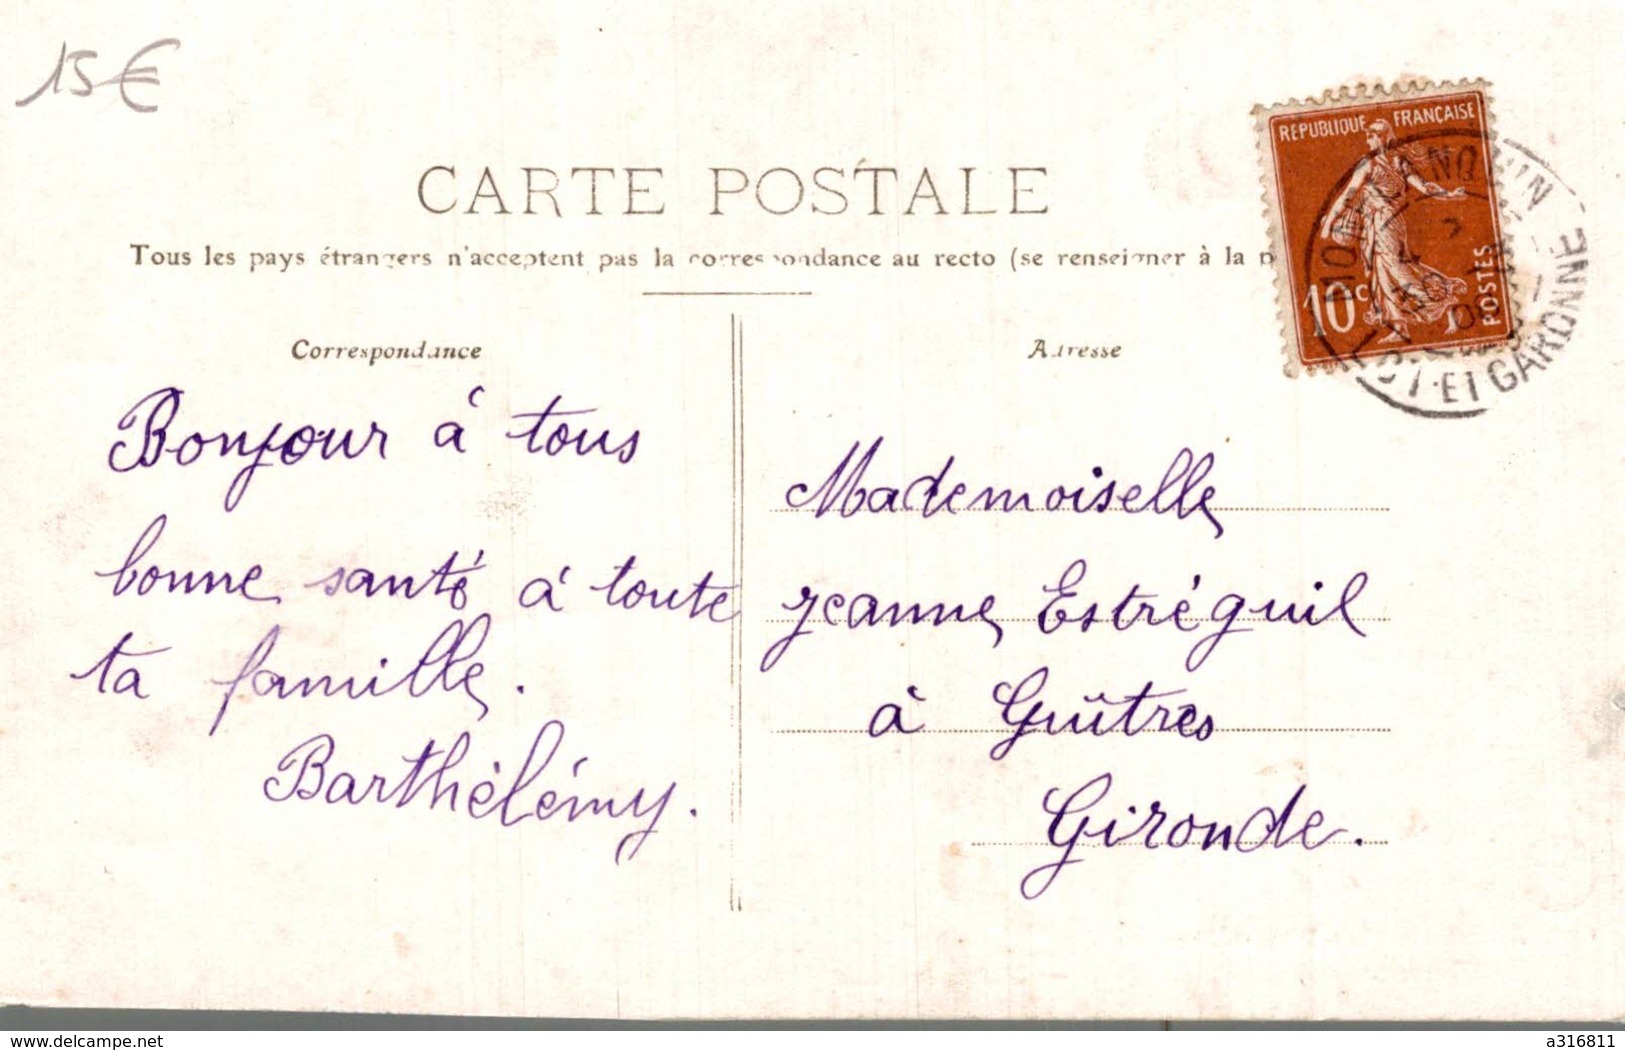 15€
CARTE POSTALE
Tous les pays étrangers n'acceptent pas la correspondance au recto (se renseigner à la p
RÉPUBLIQUE FRANÇAISE
10c
POSTES
MONFLANQUIN
LOT-ET-GARONNE
Correspondance
Bonjour à tous
bonne santé à toute
ta famille.
Barthélémy.
Adresse
Mademoiselle
Jeanne Estréguil
à Guîtres
Gironde.
www.delcampe.net
a316811